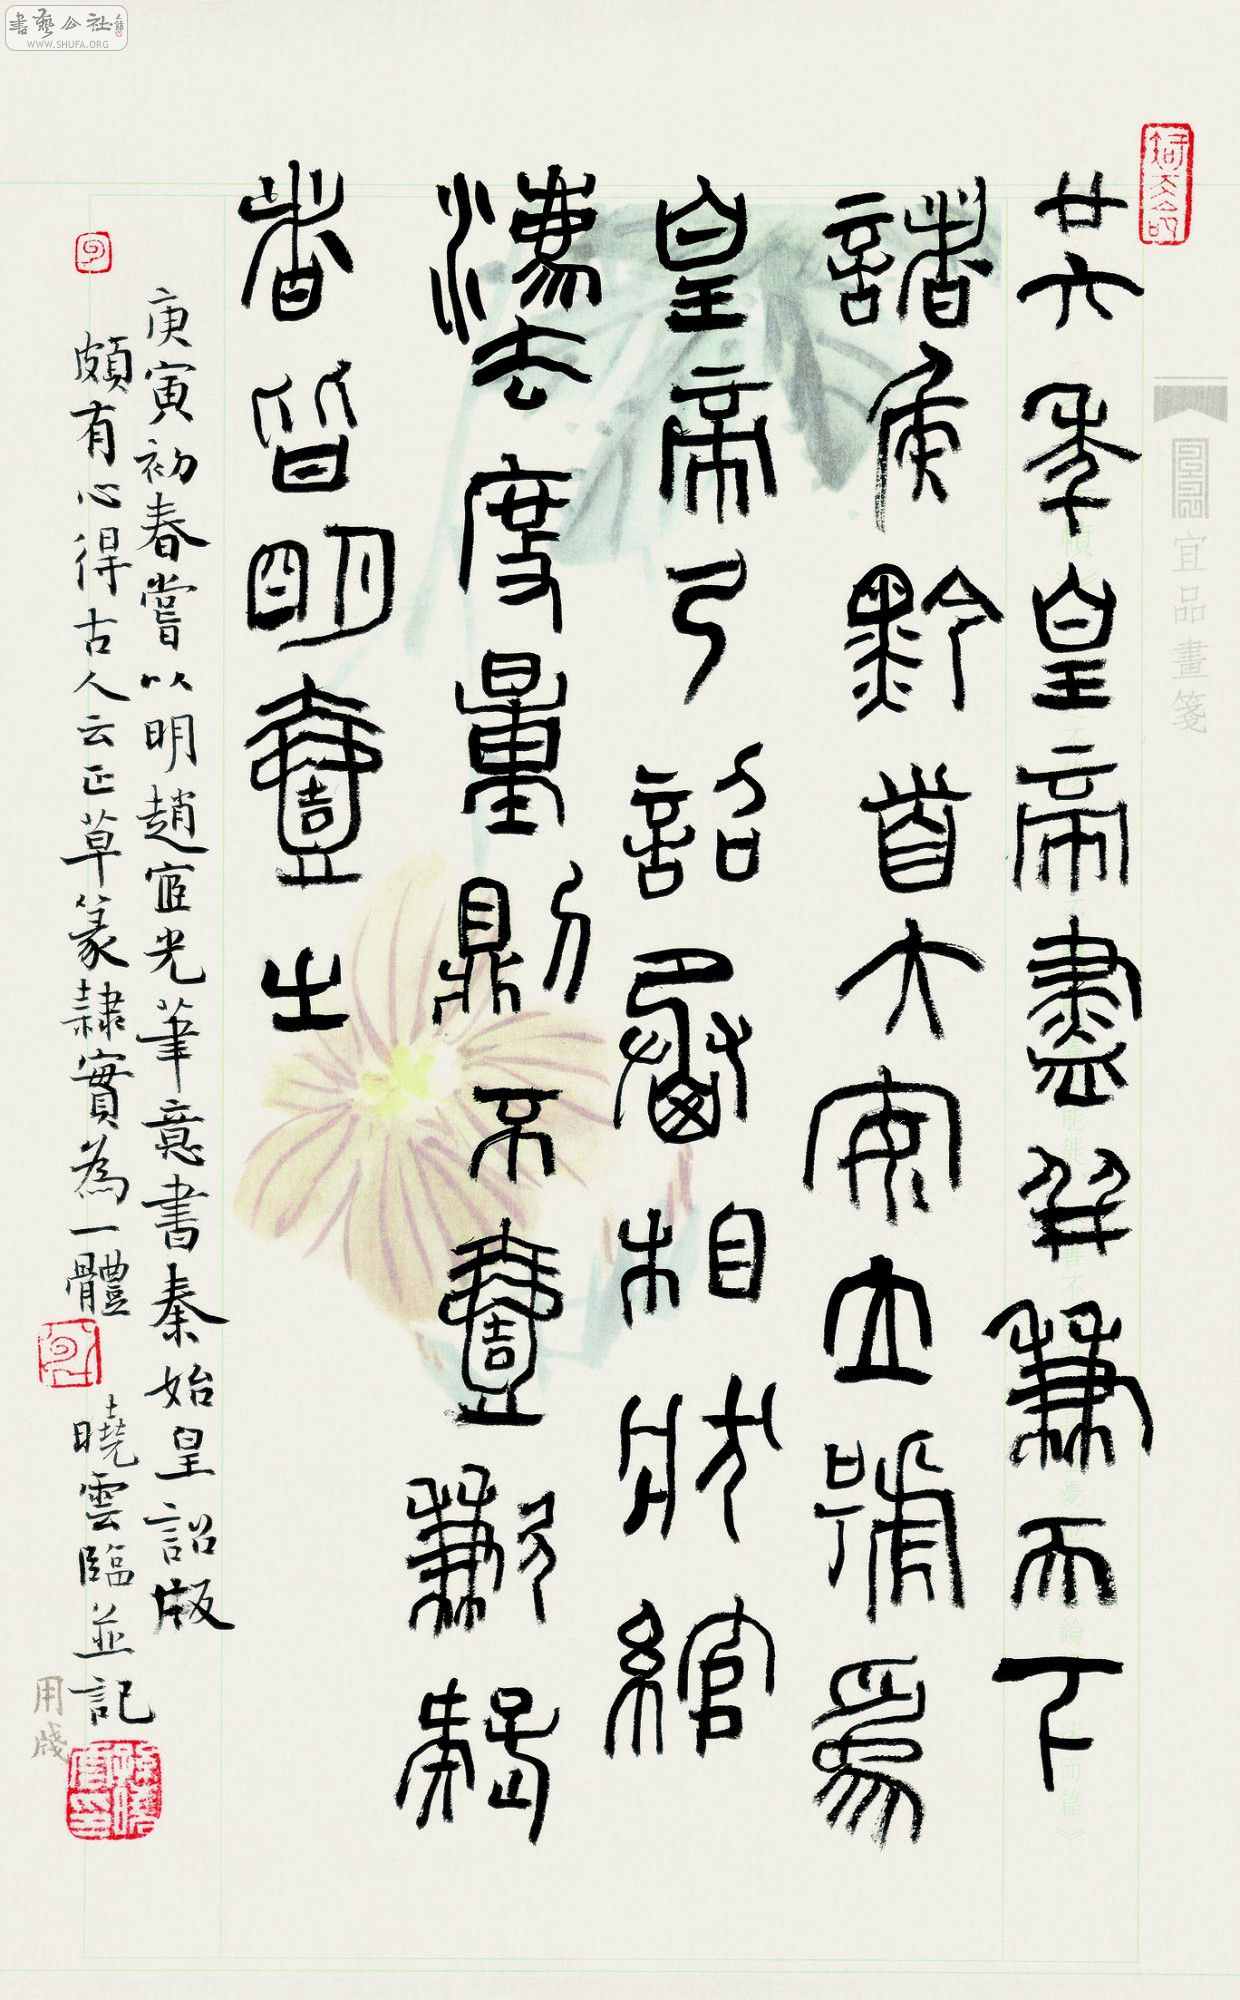 書藝公社
WWW.SHUFA.ORG
宜品畫箋
廿六年皇帝盡并兼天下
諸侯黔首大安立號為
皇帝乃詔丞相狀綰
灋度量則不壹歉疑
者皆明壹之
庚寅初春嘗以明趙宧光筆意書秦始皇詔版
頗有心得古人云正草篆隸實為一體 曉雲臨並記
用牋